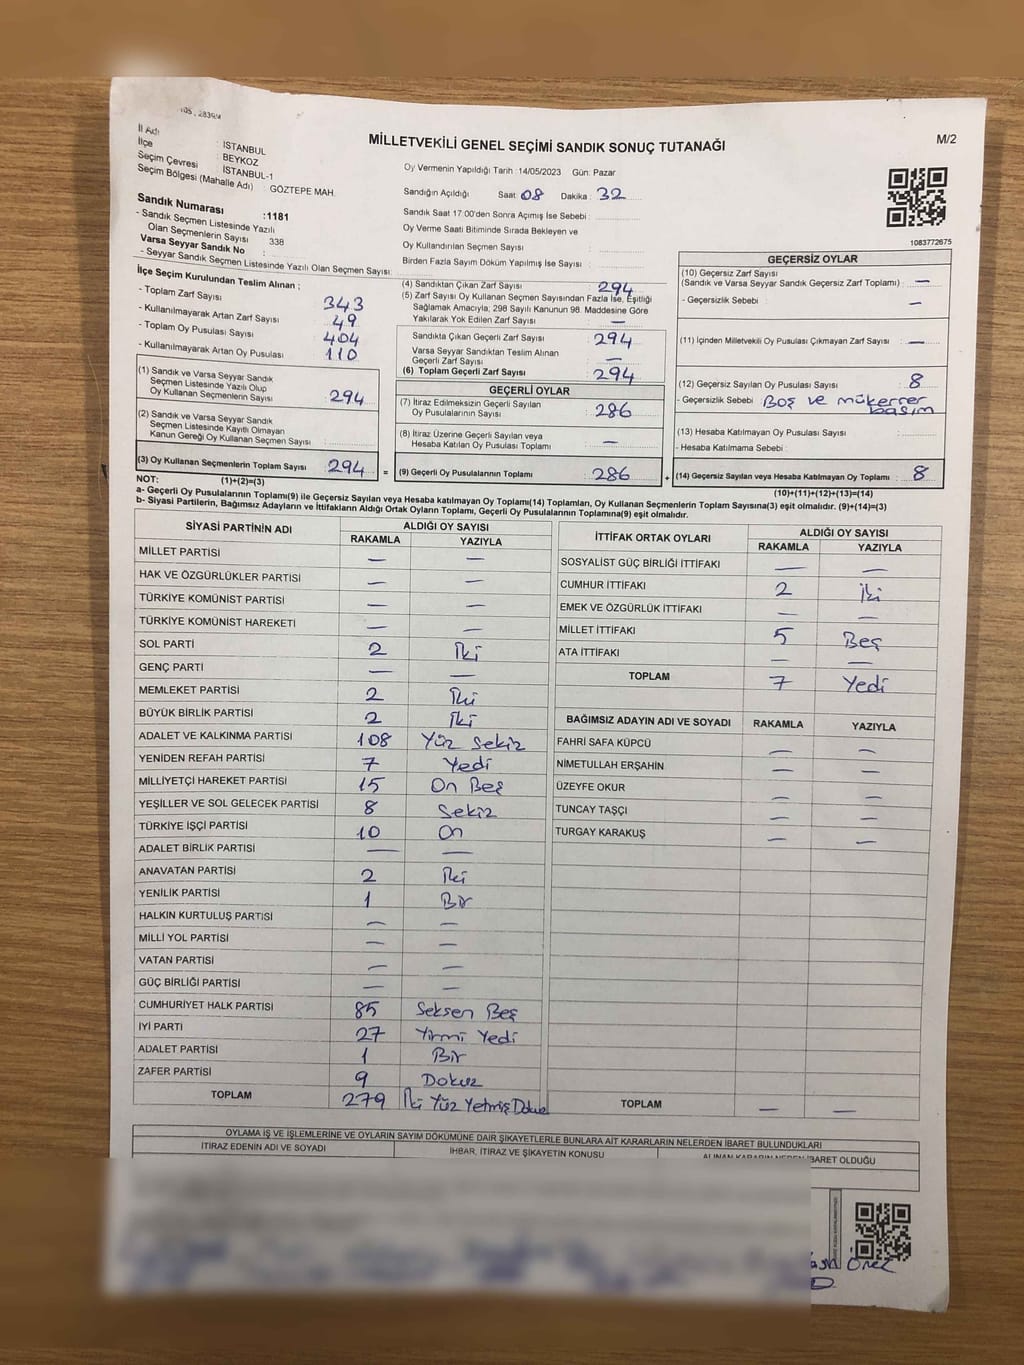 105 , 2839/4
MİLLETVEKİLİ GENEL SEÇİMİ SANDIK SONUÇ TUTANAĞI
M/2
İl Adı : İSTANBUL
İlçe : BEYKOZ
Seçim Çevresi : İSTANBUL-1
Seçim Bölgesi (Mahalle Adı) : GÖZTEPE MAH.
Sandık Numarası :1181
- Sandık Seçmen Listesinde Yazılı
Olan Seçmenlerin Sayısı 338
Varsa Seyyar Sandık No :
- Seyyar Sandık Seçmen Listesinde Yazılı Olan Seçmen Sayısı:
Oy Vermenin Yapıldığı Tarih : 14/05/2023 Gün: Pazar
Sandığın Açıldığı Saat 08 Dakika : 32
Sandık Saat 17:00'den Sonra Açımış İse Sebebi :
Oy Verme Saati Bitiminde Sırada Bekleyen ve
Oy Kullandırılan Seçmen Sayısı :
Birden Fazla Sayım Döküm Yapılmış İse Sayısı :
1083772675
İlçe Seçim Kurulundan Teslim Alınan ;
- Toplam Zarf Sayısı : 343
- Kullanılmayarak Artan Zarf Sayısı : 49
- Toplam Oy Pusulası Sayısı : 404
- Kullanılmayarak Artan Oy Pusulası : 110
(1) Sandık ve Varsa Seyyar Sandık
Seçmen Listesinde Yazılı Olup
Oy Kullanan Seçmenlerin Sayısı : 294
(2) Sandık ve Varsa Seyyar Sandık
Seçmen Listesinde Kayıtlı Olmayan
Kanun Gereği Oy Kullanan Seçmen Sayısı :
(3) Oy Kullanan Seçmenlerin Toplam Sayısı : 294 =
(4) Sandıktan Çıkan Zarf Sayısı : 294
(5) Zarf Sayısı Oy Kullanan Seçmen Sayısından Fazla İse, Eşitliği
Sağlamak Amacıyla, 298 Sayılı Kanunun 98. Maddesine Göre
Yakılarak Yok Edilen Zarf Sayısı : —
Sandıkta Çıkan Geçerli Zarf Sayısı : 294
Varsa Seyyar Sandıktan Teslim Alınan
Geçerli Zarf Sayısı : —
(6) Toplam Geçerli Zarf Sayısı : 294
GEÇERLİ OYLAR
(7) İtiraz Edilmeksizin Geçerli Sayılan
Oy Pusulalarının Sayısı : 286
(8) İtiraz Üzerine Geçerli Sayılan veya
Hesaba Katılan Oy Pusulası Toplamı : —
(9) Geçerli Oy Pusulalarının Toplamı : 286 +
GEÇERSİZ OYLAR
(10) Geçersiz Zarf Sayısı
(Sandık ve Varsa Seyyar Sandık Geçersiz Zarf Toplamı) : —
- Geçersizlik Sebebi : —
(11) İçinden Milletvekili Oy Pusulası Çıkmayan Zarf Sayısı : —
(12) Geçersiz Sayılan Oy Pusulası Sayısı : 8
- Geçersizlik Sebebi : Boş ve mükerrer
basım
(13) Hesaba Katılmayan Oy Pusulası Sayısı :
- Hesaba Katılmama Sebebi :
(14) Geçersiz Sayılan veya Hesaba Katılmayan Oy Toplamı : 8
NOT: (1)+(2)=(3)
(10)+(11)+(12)+(13)=(14)
a- Geçerli Oy Pusulalarının Toplamı(9) ile Geçersiz Sayılan veya Hesaba katılmayan Oy Toplamı(14) Toplamları, Oy Kullanan Seçmenlerin Toplam Sayısına(3) eşit olmalıdır. (9)+(14)=(3)
b- Siyasi Partilerin, Bağımsız Adayların ve İttifakların Aldığı Ortak Oyların Toplamı, Geçerli Oy Pusulalarının Toplamına(9) eşit olmalıdır.
SİYASİ PARTİNİN ADI ALDIĞI OY SAYISI
RAKAMLA YAZIYLA
MİLLET PARTİSİ — —
HAK VE ÖZGÜRLÜKLER PARTİSİ — —
TÜRKİYE KOMÜNİST PARTİSİ — —
TÜRKİYE KOMÜNİST HAREKETİ — —
SOL PARTİ 2 İki
GENÇ PARTİ — —
MEMLEKET PARTİSİ 2 İki
BÜYÜK BİRLİK PARTİSİ 2 İki
ADALET VE KALKINMA PARTİSİ 108 Yüz Sekiz
YENİDEN REFAH PARTİSİ 7 Yedi
MİLLİYETÇİ HAREKET PARTİSİ 15 On Beş
YEŞİLLER VE SOL GELECEK PARTİSİ 8 Sekiz
TÜRKİYE İŞÇİ PARTİSİ 10 On
ADALET BİRLİK PARTİSİ — —
ANAVATAN PARTİSİ 2 İki
YENİLİK PARTİSİ 1 Bir
HALKIN KURTULUŞ PARTİSİ — —
MİLLİ YOL PARTİSİ — —
VATAN PARTİSİ — —
GÜÇ BİRLİĞİ PARTİSİ — —
CUMHURİYET HALK PARTİSİ 85 Seksen Beş
İYİ PARTİ 27 Yirmi Yedi
ADALET PARTİSİ 1 Bir
ZAFER PARTİSİ 9 Dokuz
TOPLAM 279 İki Yüz Yetmiş Dokuz
İTTİFAK ORTAK OYLARI ALDIĞI OY SAYISI
RAKAMLA YAZIYLA
SOSYALİST GÜÇ BİRLİĞİ İTTİFAKI — —
CUMHUR İTTİFAKI 2 İki
EMEK VE ÖZGÜRLÜK İTTİFAKI — —
MİLLET İTTİFAKI 5 Beş
ATA İTTİFAKI — —
TOPLAM 7 Yedi
BAĞIMSIZ ADAYIN ADI VE SOYADI RAKAMLA YAZIYLA
FAHRİ SAFA KÜPCÜ — —
NİMETULLAH ERŞAHİN — —
ÜZEYFE OKUR — —
TUNCAY TAŞÇI — —
TURGAY KARAKUŞ — —
TOPLAM — —
OYLAMA İŞ VE İŞLEMLERİNE VE OYLARIN SAYIM DÖKÜMÜNE DAİR ŞİKAYETLERLE BUNLARA AİT KARARLARIN NELERDEN İBARET BULUNDUKLARI
İTİRAZ EDENİN ADI VE SOYADI İHBAR, İTİRAZ VE ŞİKAYETİN KONUSU ALINAN KARARIN NEDEN İBARET OLDUĞU